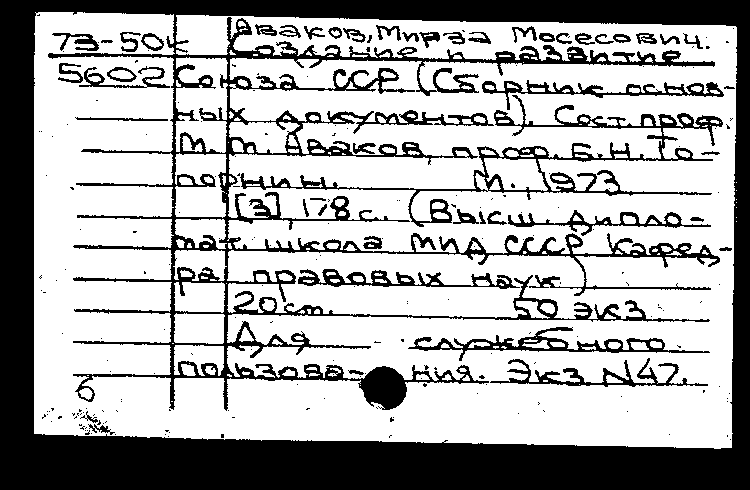 Аваков, Мирза Мосесович.
73-50к Создание и развитие
5602 Союза ССР (Сборник основ-
ных документов). Сост. проф.
М. М. Аваков, проф. Б. Н. То-
порнин. М., 1973.
[3], 178 с. (Высш. дипло-
мат. школа МИД СССР Кафед-
ра правовых наук).
20 см. 50 экз.
Для служебного
пользова- ния. Экз N47.
6